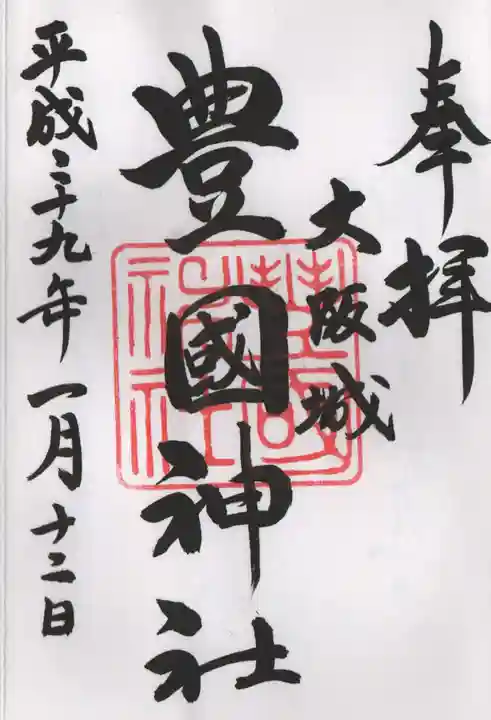 奉拝
大阪城
豊國神社
平成二十九年一月十二日
豊國
神社